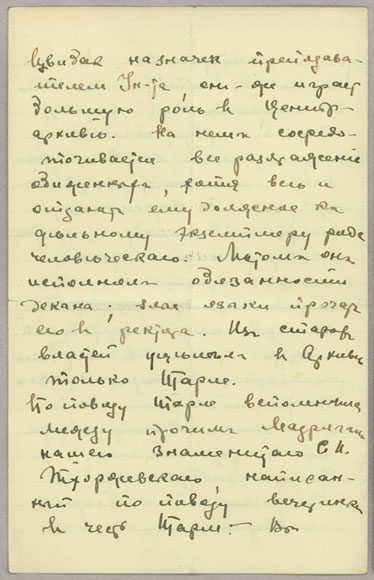 назначен преподава-
телем Ун-та, он-же играет
большую роль в Центр-
архиве. На нем сосредо-
точивается все раздражение
хотя весь и
отдавая ему должное как
экземпляру рода
человеческого. Летом он
исполнял обязанности
декана; злые языки прочат
его в ректора. Из старых
властей уцелел в Архиве
только Тарле.
По поводу Тарле вспомнил
между прочим мадригал
нашего знаменитого С. Н.
Тхоржевского, написан-
ный по поводу вечеринки
в честь Тарле: — Въ